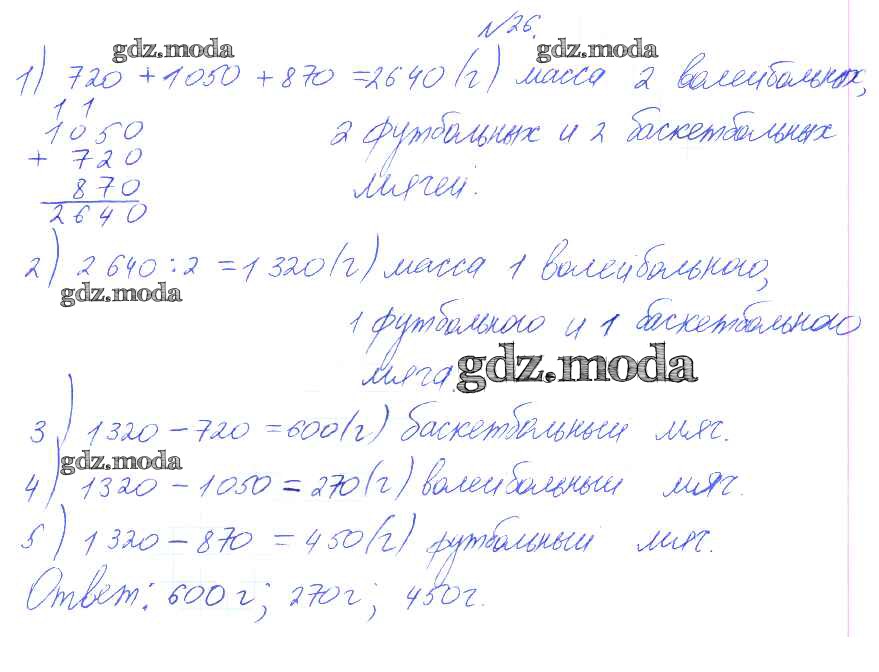 №26.
gdz.moda gdz.moda
1) 720 + 1050 + 870 = 2640 (г) масса 2 волейбольных,
1 1
1050
2 футбольных и 2 баскетбольных
+ 720
870
мячей.
2640
2) 2640 : 2 = 1320 (г) масса 1 волейбольного,
gdz.moda
1 футбольного и 1 баскетбольного
мяча.
gdz.moda
3) 1320 - 720 = 600 (г) баскетбольный мяч.
gdz.moda
4) 1320 - 1050 = 270 (г) волейбольный мяч.
5) 1320 - 870 = 450 (г) футбольный мяч.
Ответ: 600 г; 270 г; 450 г.